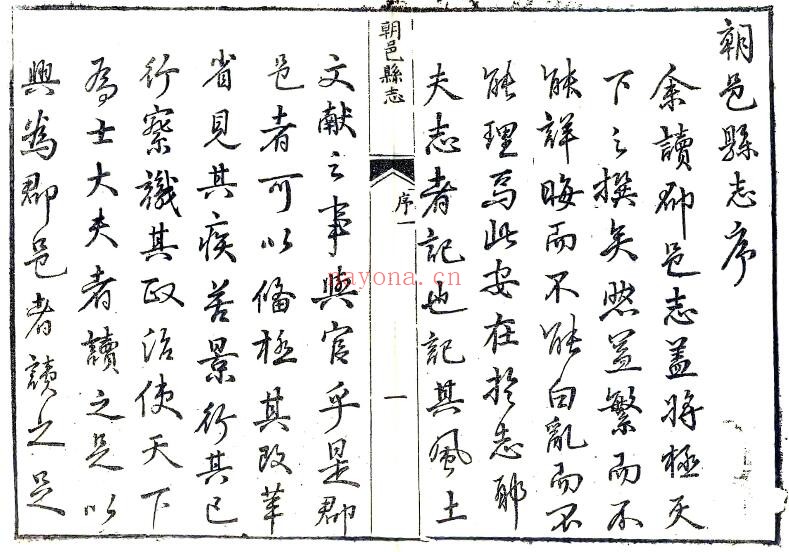 朝邑縣志序
余讀郡邑志蓋將極天
下之撰矣然益繁而不
能詳晦而不能白亂而不
能理焉此安在於志耶
夫志者記也記其風土
朝邑縣志
序一
一
文獻之事與官乎是郡
邑者可以備極其改革
省見其疾苦景行其已
行察識其政治使天下
為士大夫者讀之足以
興為郡邑者讀之足
nayona.cn